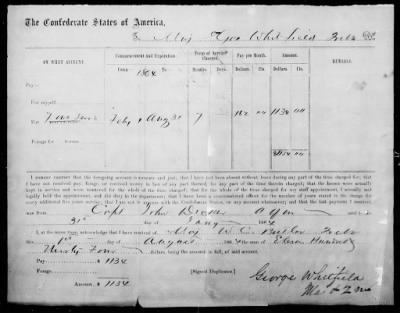 The Confederate States of America,
To Maj Geo Whitfield
ON WHAT ACCOUNT.
Commencement and Expiration.
Term of Service Charged.
Pay per Month.
Amount.
REMARKS.
From 1864
Months. Days. Dollars. Cts. Dollars. Cts.
Pay—
For myself
Feby Aug 31 7 162 00 1134 00
Forage for horses
1134 00
I HEREBY CERTIFY that the foregoing account is accurate and just; that I have not been absent without leave during any part of the time charged for; that
I have not received Pay, Forage, or received money in lieu of any part thereof, for any part of the time therein charged; that the horses were actually
kept in service and were mustered for the whole of the time charged; that for the whole of the time charged for my staff appointment, I actually and
legally held the appointment, and did duty in the department; that I have been a commissioned officer for the number of years stated in the charge for
every additional five years' service; that I am not in arrears with the Confederate States, on any account whatsoever; and that the last payment I received
was from Capt John
31st
I, at the same time, acknowledge that I have received of Maj W. C.
1st day of August 1864 Eleven Hundred
Thirty Four Dollars, being the amount, in full, of said account.
Pay — — $ 1134
Forage — —
Amount — $ 1134
[Signed Duplicates.]
George Whitfield